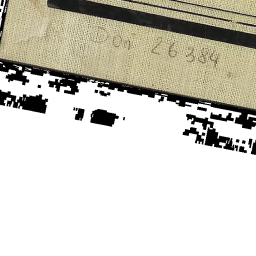 Don 26384